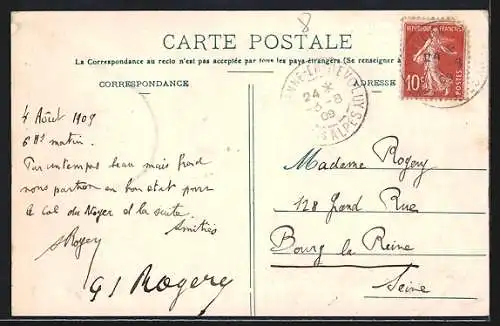 8
CARTE POSTALE
La Correspondance au recto n'est pas acceptée par tous les pays étrangers (Se renseigner à
CORRESPONDANCE
ADRESSE
REPUBLIQUE FRANÇAISE
10
POSTES
24
ÉTIENNE-EN-DEVOLUY
24
3-8
09
ALPES
4 Août 1909
6h matin.
Par un temps beau mais froid
nous partons en bon état pour
le col du Noyer et la suite.
Amitiés
Rogery
G Rogery
Madame Rogery
128 Grand Rue
Bourg la Reine
Seine